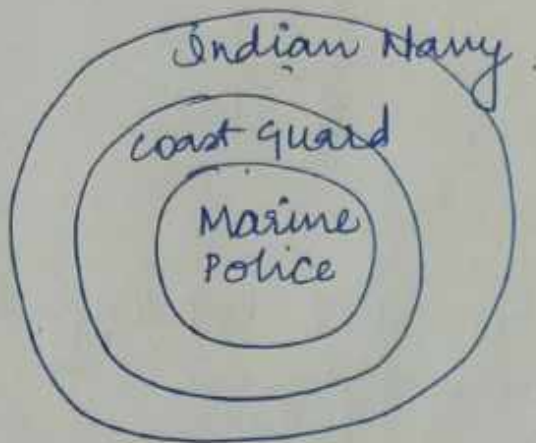 Indian Navy
coast guard
Marine
Police